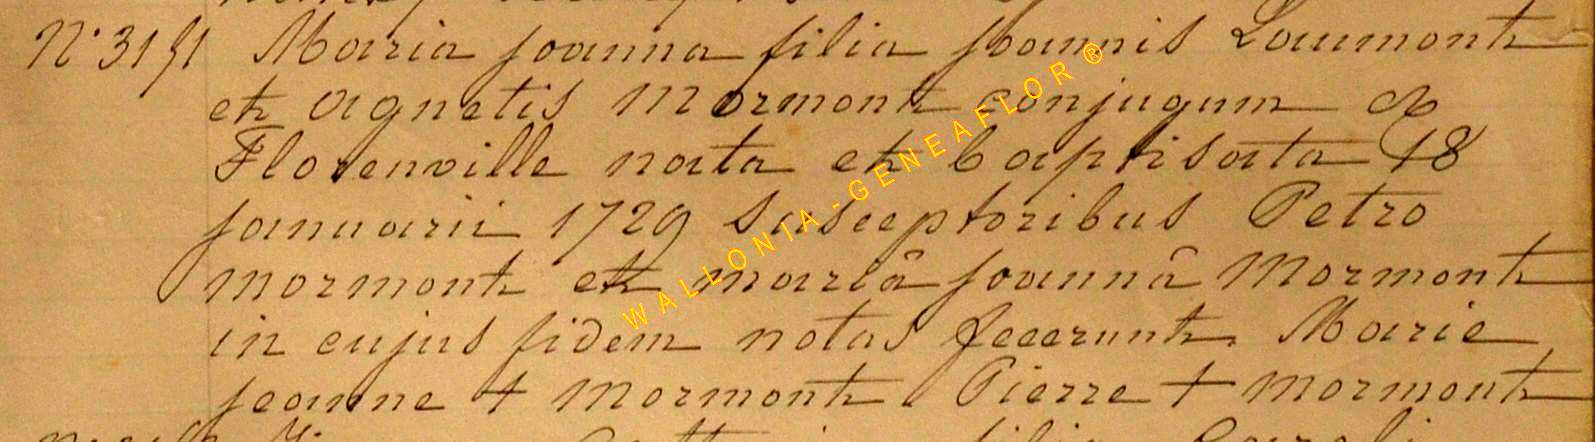 N° 3151 Maria joanna filia joannis Laumont
et Agnetis Mormont conjugum de
Florenville nata et baptisata 18
januarii 1729 susceptoribus Petro
mormont et mariâ joannâ Mormont
in cujus fidem notas fecerunt. Marie
jeanne + Mormont Pierre + Mormont
WALLONIA - GENEAFLOR ®